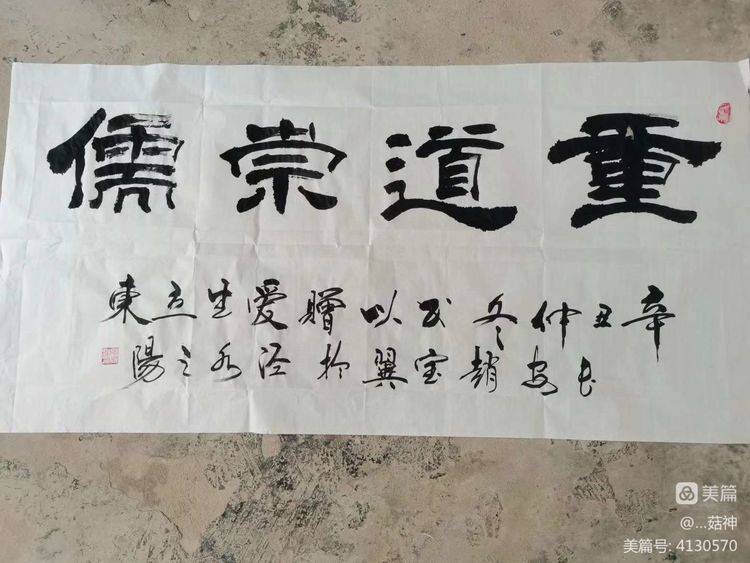 重道崇儒
辛丑仲冬书以贈愛生立東
长安趙宝翼於泾水之陽
美篇
@...菇神
美篇号: 4130570